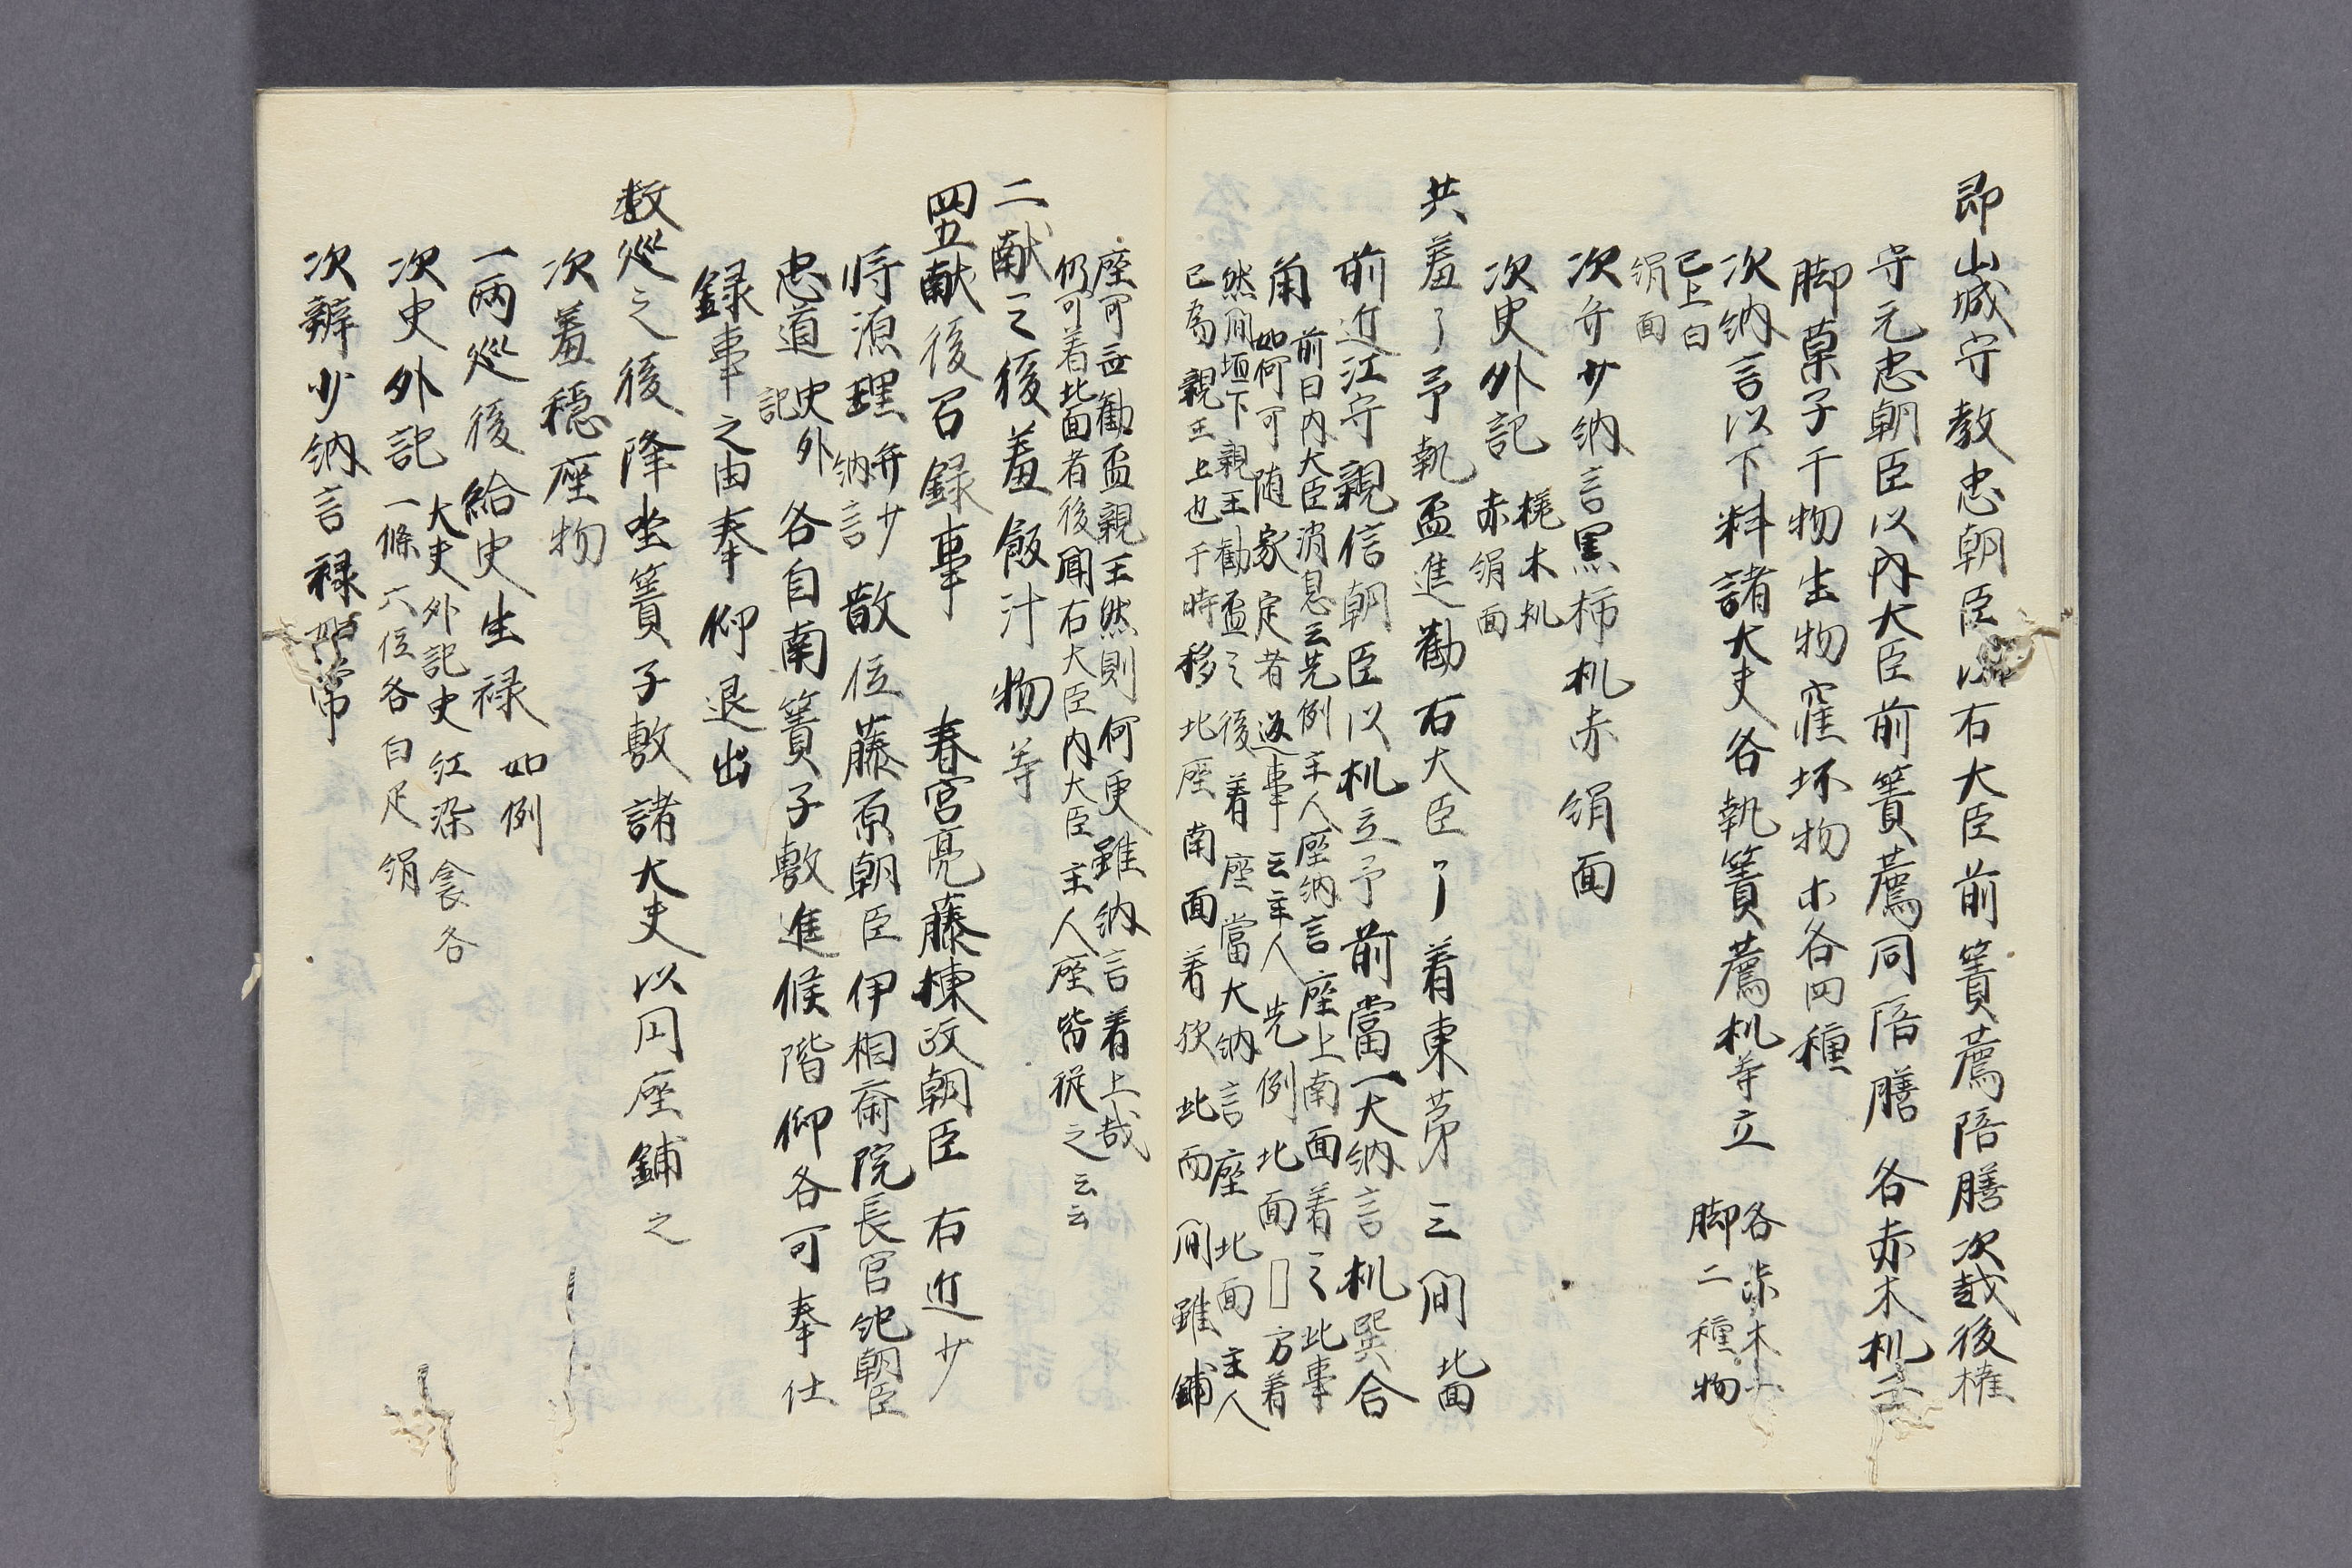 即山城守教忠朝臣以右大臣前簀薦陪膳次越後権
守元忠朝臣以内大臣前簀薦同陪膳 各赤木机立
脚菓子干物生物窪坏物木各四種
次納言以下料諸大夫各執簀薦机等立 各赤木
脚二種物
已上白
絹面
次弁少納言黒柿机赤絹面
次史外記 榥木机
赤絹面
共羞了予執盃進勸右大臣了着東第三間北面
前近江守親信朝臣以机立予前當一大納言机巽合
角 前日内大臣消息云先例主人座納言座上南面着之此事
如何可随家定者返事云主人先例北面□方着
然間垣下親王勸盃之後着座當大納言座北面主人
已為親王上也于時移北座南面着欤北面間雖鋪
座可無勸盃親王然則何更雖納言着上哉
仍可着北面者後聞右大臣内大臣主人座皆従之云云
二献之後羞飯汁物等
四五献後召録事 春宮亮藤棟政朝臣 右近少
将源理 弁少
納言 散位藤原朝臣伊相斎院長官 朝臣
忠道 史外
記 各自南簀子敷進候階仰各可奉仕
録事之由奉仰退出
数巡之後降坐簀子敷諸大夫以円座鋪之
次羞穏座物
一両巡後給史生禄 如例
次史外記 大夫外記史紅染衾各
一條六位各白疋絹
次辨少納言禄如常